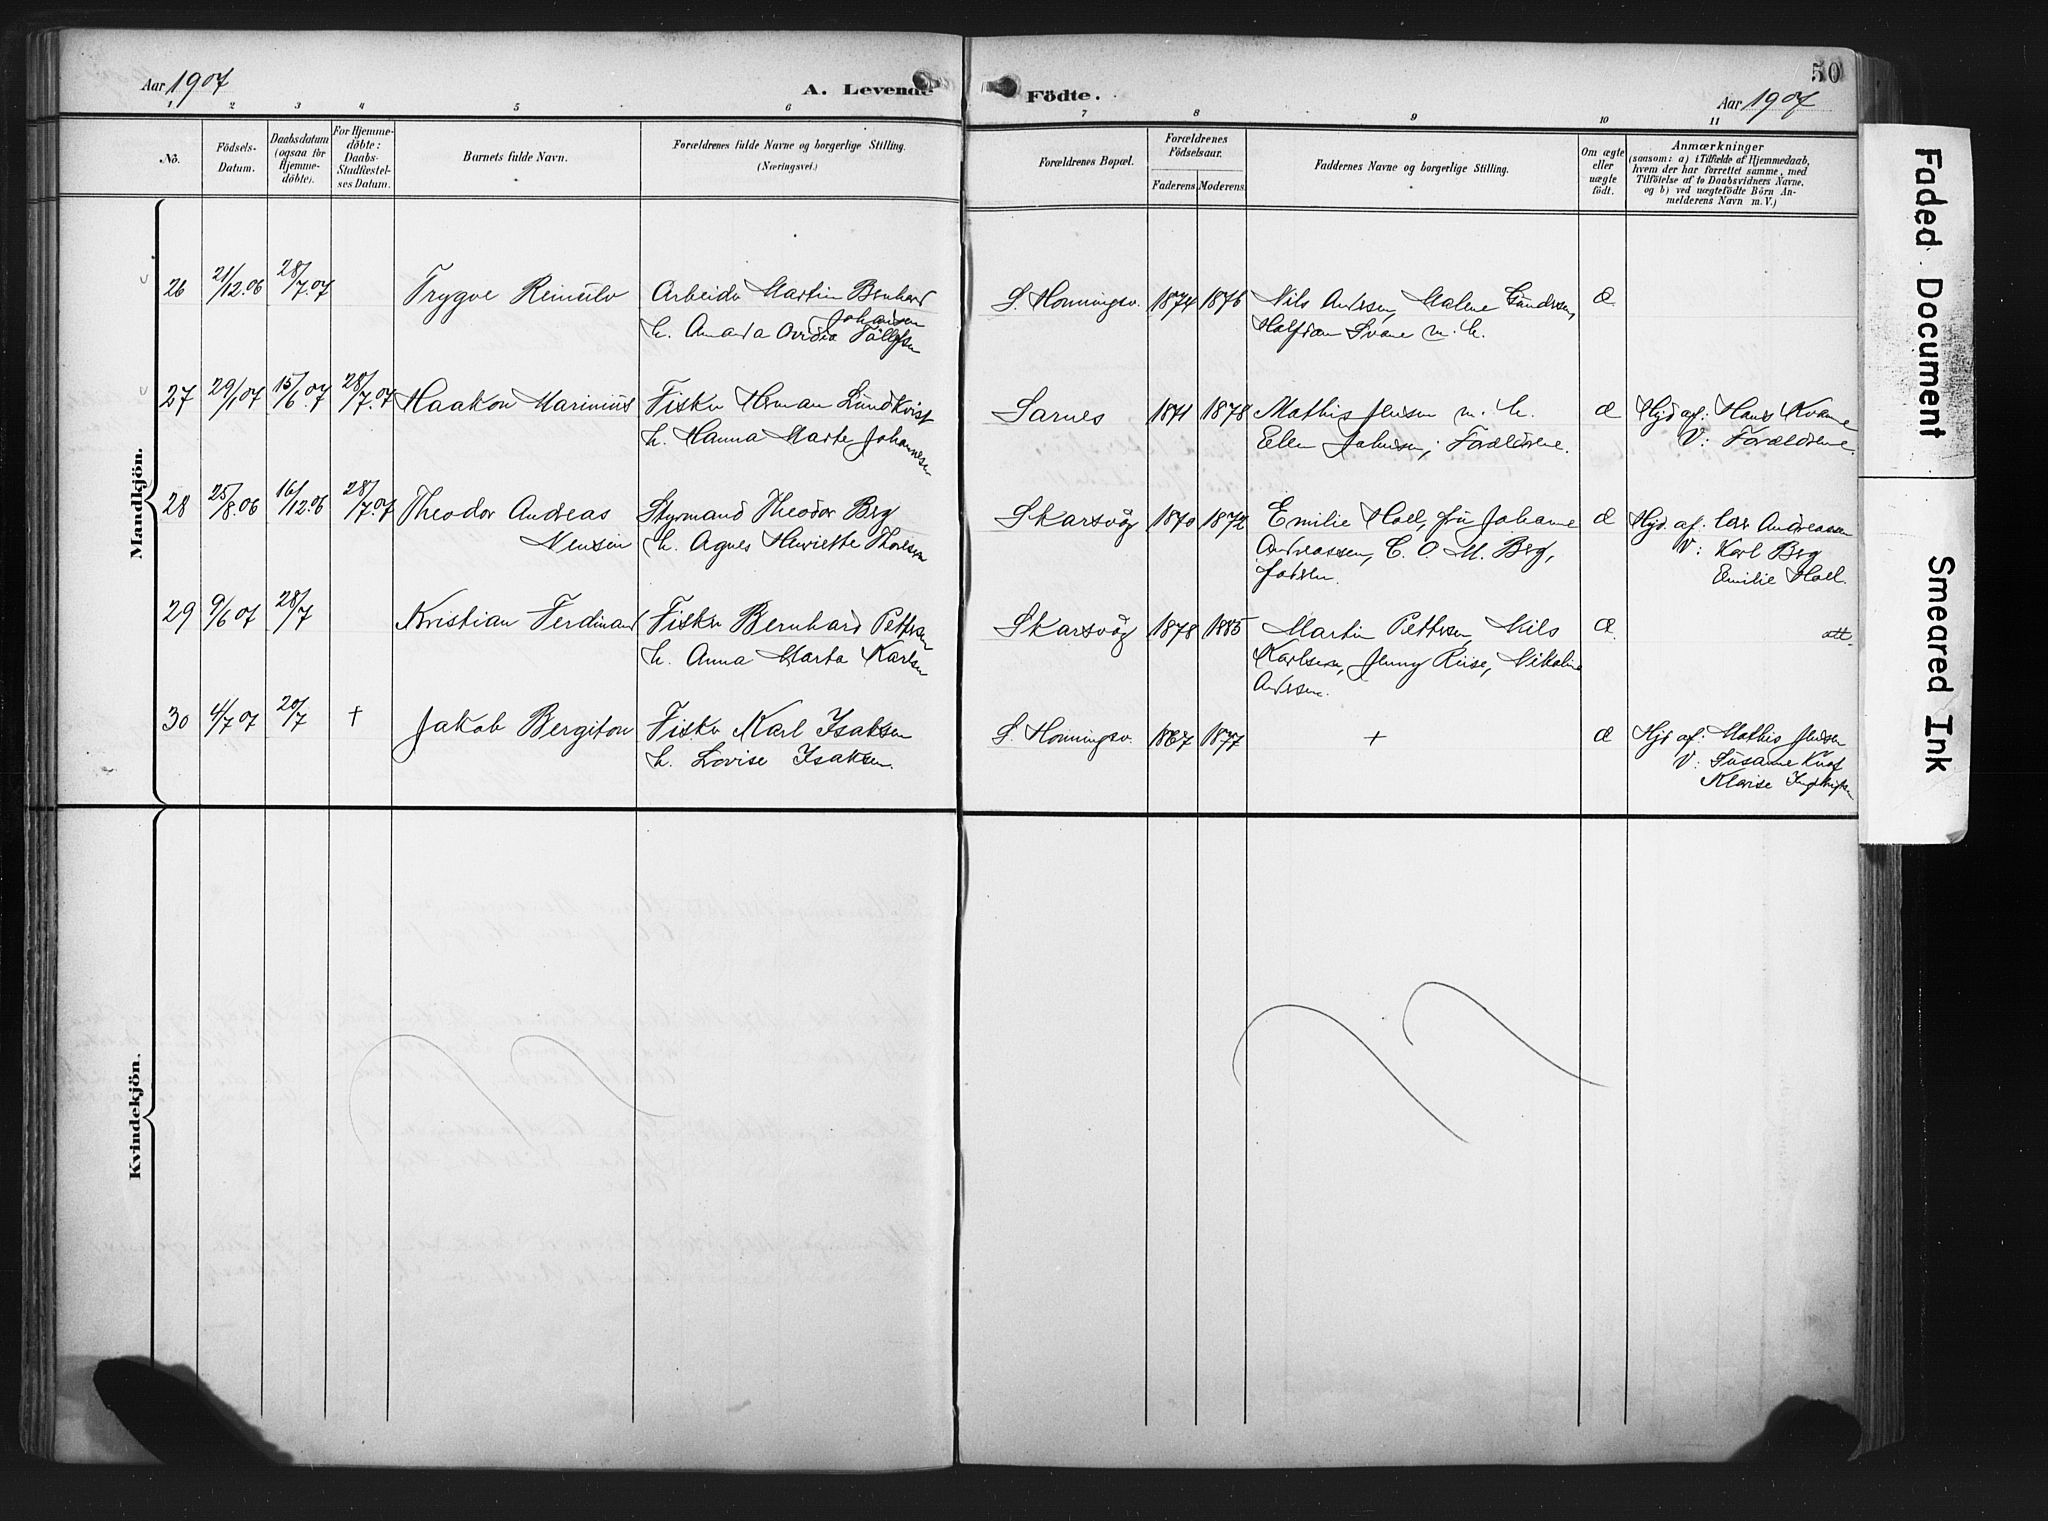 Aar 1907
A. Levende
Födte.
50
Aar 1907
1 2 3 4 5 6 7 8 9 10 11
No.
Födsels-
Datum.
Daabsdatum
(ogsaa for
Hjemme-
döbte).
For Hjemme-
döbte:
Daabs-
Stadfæstel-
ses Datum.
Barnets fulde Navn.
Forældrenes fulde Navne og borgerlige Stilling.
(Næringsvei.)
Forældrenes Bopæl.
Forældrenes
Födselsaar.
Faderens.
Moderens.
Faddernes Navne og borgerlige Stilling.
Om ægte
eller
uægte
födt.
Anmærkninger
(saasom: a) i Tilfælde af Hjemmedaab,
hvem der har forrettet samme, med
Tilföielse af to Daabsvidners Navne,
og b) ved uægtefödte Börn An-
melderens Navn m. V.)
Mandkjön.
26 21/12.06 28/7.07 Trygve Arbeider Martin Bernhard S. Honningsv. 1874 1876 Nils Andersen, Malene Æ
Johansen
h. Amanda Ovidia Halfdan Svane m. h.
27 29/1 07 15/6.07 28/7.07 Haakon Marinius Fisker Herman Lundkvist Sarnes 1871 1878 Mathis Jensen m. h. Æ Hjd af: Hans Kvame
h. Hanna Marte Johannesen Elen Johnsen, Forældrene. V: Forældrene.
28 25/8.06 16/12.06 28/7.07 Theodor Andreas Styrmand Theodor Berg Skarsvåg 1870 1872 Emilie Holl, fru Johanne Æ Hjd. af: Andreassen
h. Agnes Henriette Thoresen Andreassen, C. O. M. Berg, V: Karl Berg
Emilie Holl.
29 9/6 07 28/7 Kristian Ferdinand Fisker Bernhard Pettersen Skarsvåg 1878 1885 Martin Pettersen, Nils Æ att.
h. Anna Marta Karlsen Karlsen, Jenny Riise, Nikoline
Andersen.
30 4/7 07 20/7 + Jakob Bergiton Fisker Karl Isaksen S. Honningsv. 1867 1877 + Æ Hjd af: Mathis Jensen
h. Lovise Isaksen. V: Susanne
Klarise
Kvindekjön.
Faded Document
Smeared Ink